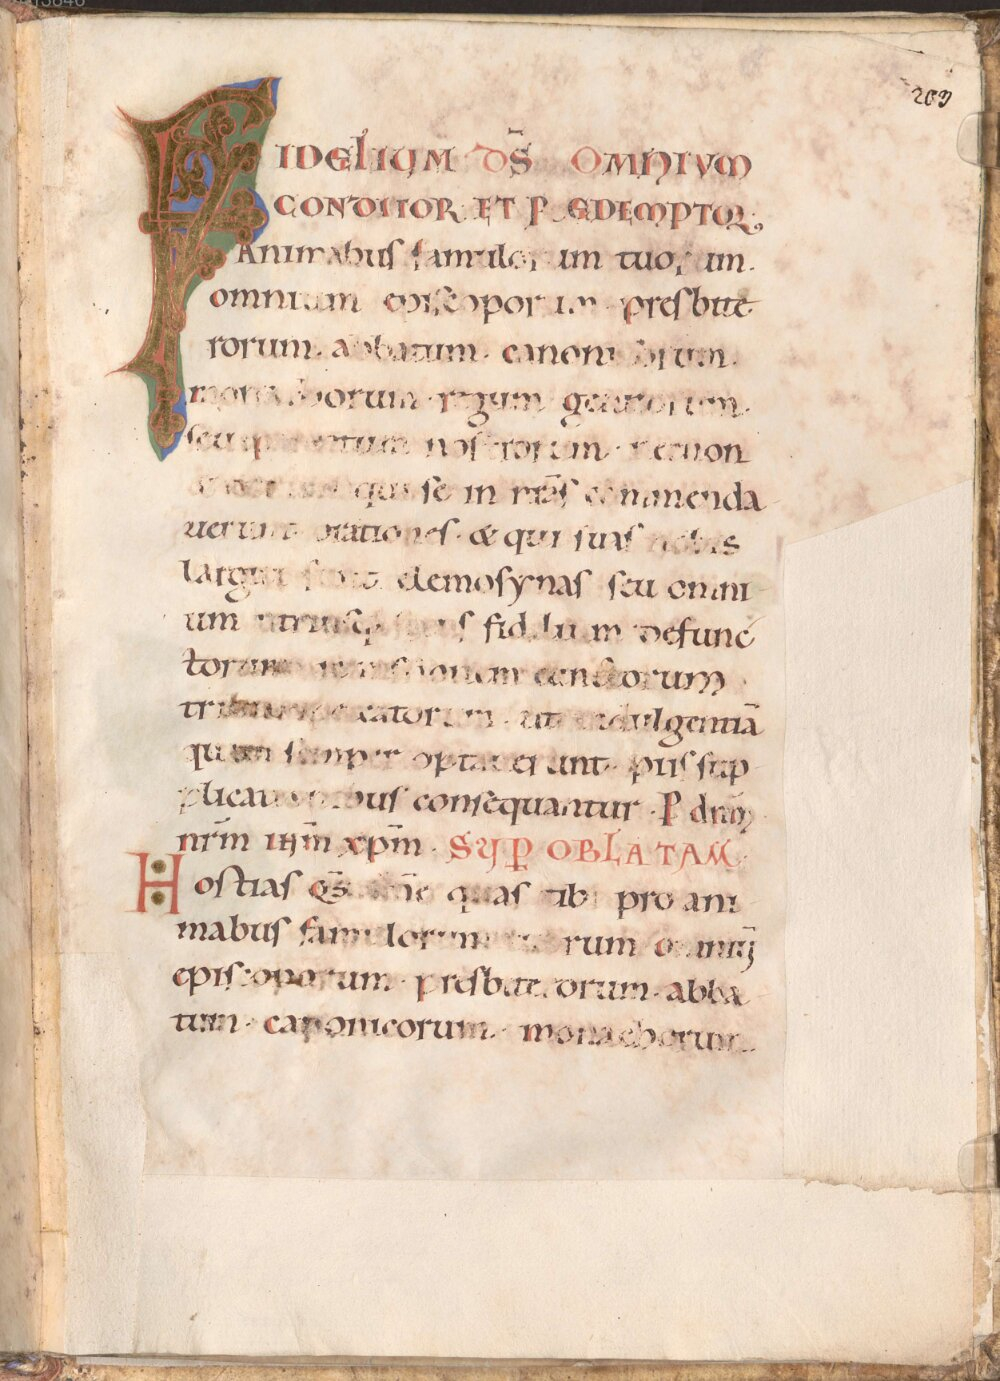 203
FIDELIUM DS̄ OMNIUM
CONDITOR ET REDEMPTOR;
Animabus famulorum tuorum.
omnium episcoporum. presbite
rorum. abbatum. canonicorum.
monachorum. regum gubernatorum.
seu parentum nostrorum. necnon
qui se in nr̄as commenda
uerunt orationes. & qui suas nobis
largiti sunt elemosynas seu omni
um utriusq; sexus fidelium defunc
torum remissionem cunctorum
tribue peccatorum. ut indulgentiā
quam semper optauerunt. piis sup
plicationibus consequantur. P dnm̄
nr̄m ihm̄ xpm̄. SUP OBLATAM.
Hostias qs̄ dn̄e quas tibi pro ani
mabus famulorum tuorum omniū
episcoporum. presbiterorum. abba
tum. canonicorum. monachorum.